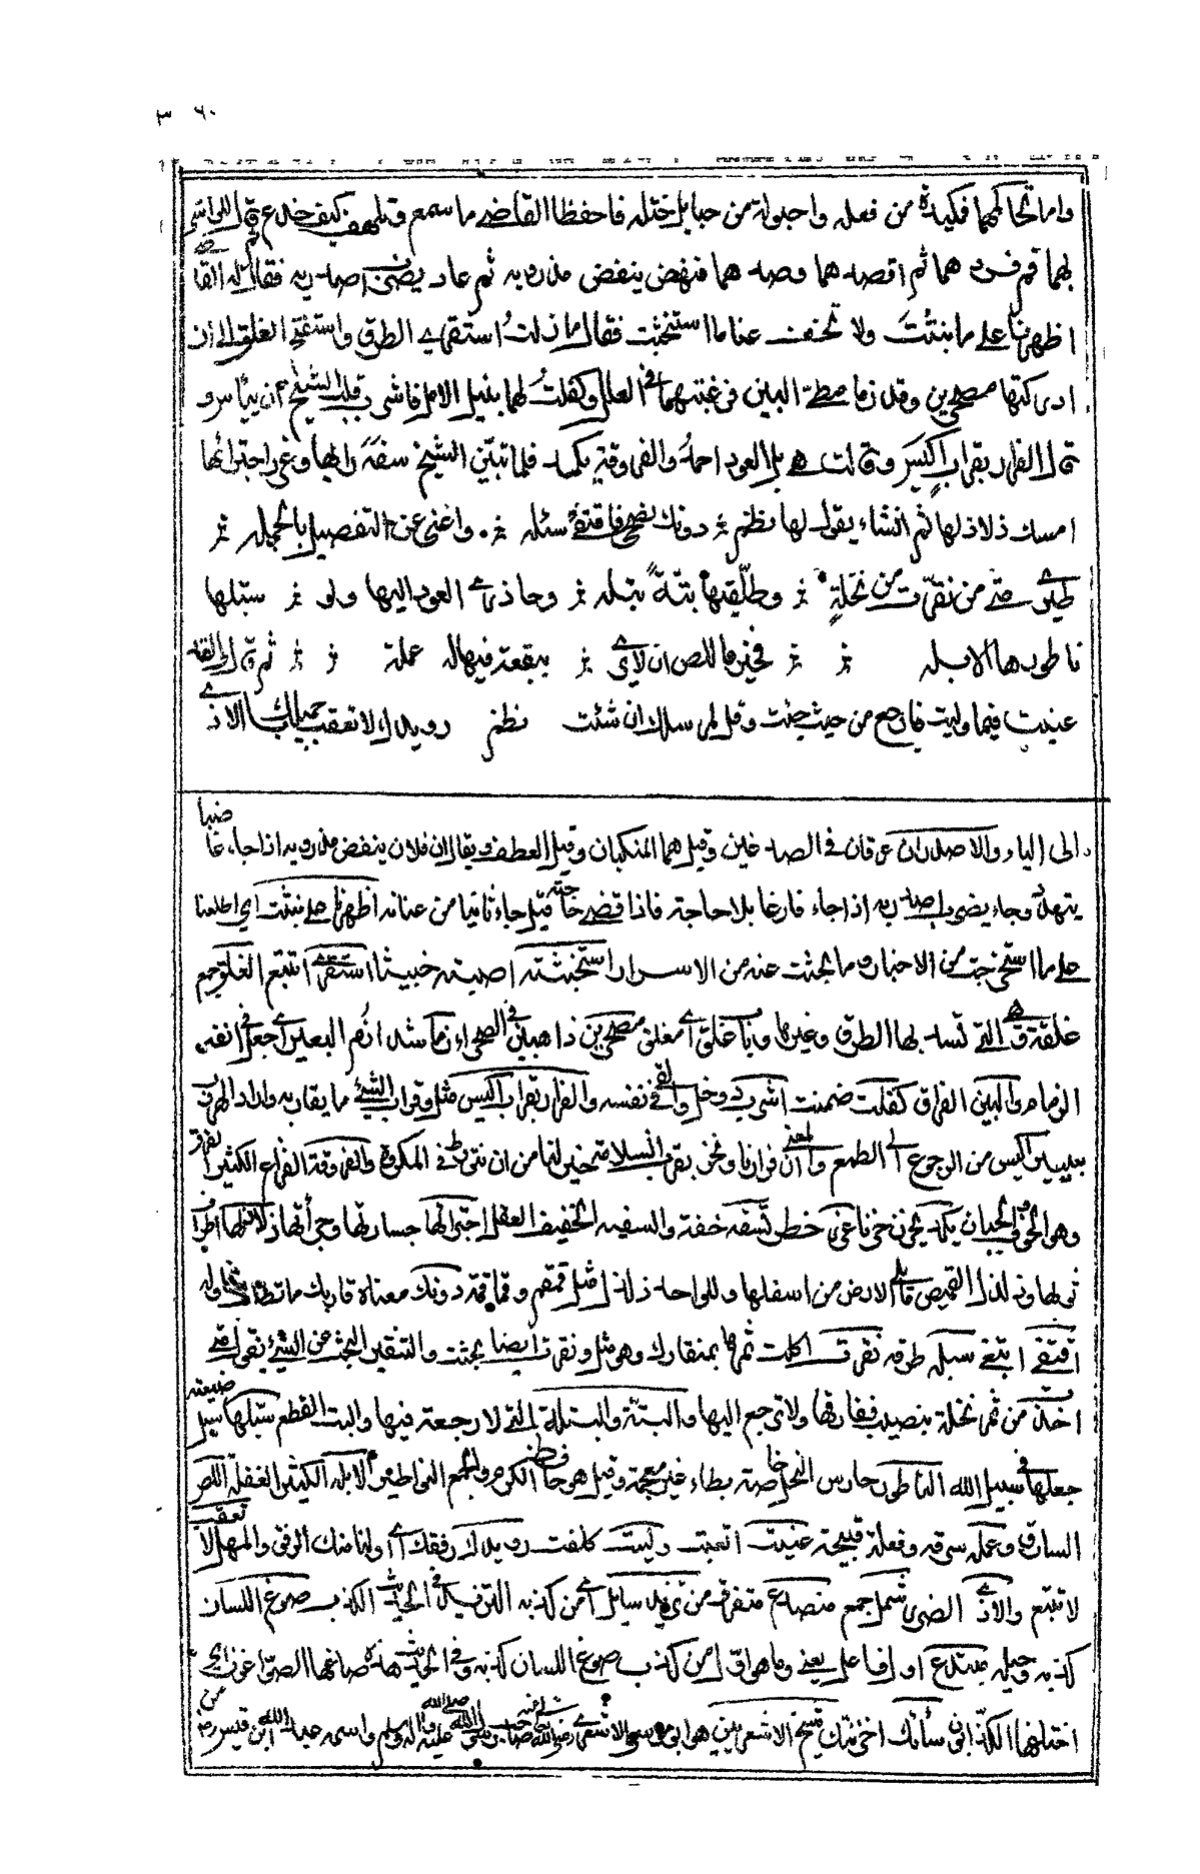 ٣٦٠
واما تحاكمهما فمكيدة من فعله واحبولة من حبايل ختله فاحفظ القاضي ما سمع وتلهف كيف خدع ثم قال للواشي
بهما قم فردهما ثم اقصدهما وصدهما فنهض ينفض مذرويه ثم عاد يضرب اصدريه فقال له القاضي
اظهرنا على ما نبثت ولا تخف عنا ما استخبثت فقال ما زلت استقري الطرق واستفتح الغلق الى ان
ادركتهما مصحرين وقد زما مطي البين فرغبتهما في العلل وكفلت لهما بنيل الامل فاشرب قلب الشيخ ان ييأس و
قال الفرار بقراب اكيس وقالت هي بل العود احمد والفروقة يكمد فلما تبين الشيخ سفه رايها وغرر اجترائها
امسك ذلاذلها ثم انشاء يقول لها نظم دونك نصحي فاقتفي سبله واغني عن التفصيل بالجمله
طيري متى نقرت من نخلة وطلقيها بتة بتله وحاذري العود اليها ولو سبلها
ناطورها الابله فخير ما للص ان لا يرى ببقعة فيها له عمله ثم قال لي لقد
عنيت فيما وليت فارجع من حيث جئت وقل لمرسلك ان شئت نظم رويدك لا تعقب جميلك بالاذى
الى الياء والاصدران عرقان في الصدغين وقيل هما المنكبان وقيل العطف ويقال ان فلان ينفض مذرويه اذا جاء
يتهدد وجاء يضرب اصدريه اذا جاء فارغا بلا حاجة فاذا قضى حاجته قيل جاء ثانيا من عنانه اظهرنا على ما نبثت اي اطلعنا
على ما استخرجت من الاخبار وما بحثت عنه من الاسرار استخبثته اصبته خبيثا استقري اتتبع الغلق جمع
غلقة وهي التي تسد بها الطرق وغيرها وباب غلق اي مغلق مصحرين ذاهبين في الصحراء زما شدا زم البعير اي جعل في انفه
الزمام والبين الفراق كفلت ضمنت اشرب دخل والقي في نفسه والفرار بقراب اكيس مثل وقراب الشيء ما يقاربه واراد الهرب
اكيس من الرجوع الى الطمع والمعنى ان فرارنا ونحن بقرب السلامة خير لنا من ان نتورط في المكروه والفروقة الفزع الكثير الفرق
وهو الخوف والجبان يكمد يحزن حزنا غرر خطر تسفه خفة والسفيه الخفيف العقل اجترائها جسارتها وجرأتها ذلاذلها اطراف
ثوبها وذلذل القميص ما يلي الارض من اسفلها والواحد ذلذل مثل قمقم وقماقم دونك معناه قاربك ما تطلبه
اقتفي اتبعي سبله طرقه نقرت اكلت ثمرها بمنقارك وهو مثل ونقرت ايضا بحثت والتنقير البحث عن الشيء
اخذت من ثمر نخلة بنصيب ففارقها ولا ترجع اليها والبتة والبتلة التي لا رجعة فيها والبت القطع سبلها سبل ضيعته
جعلها في سبيل الله الناطور حارس النخل خاصة بطاء غير معجمة وقيل هو حافظ الكرم والجمع النواطير الابله الكثير الغفلة اللص
السارق وعمله سرقه وفعلة قبيحة عنيت اتعبت وليت كلفت رويدك رفقك اي اولنا منك الرفق والمهل لا تعقب
لا تتبع والاذى الضرر شمل جمع منصدع متفرق من تزيد سايل اي من كذبه التزيد في الحديث الكذب صوغ اللسان
كذبه وحيله مبتدع اول فاعل يعني وما هو اول من كذب صوغ اللسان كذبه وفي الحديث هذه صاغها الصواغون اي
اختلقها الكذابون ساءتك احزنتك شيخ الاشعريين هو ابو موسى الاشعري رضي الله عنه صاحب النبي صلى الله عليه واله وسلم واسمه عبد الله ابن قيس رضي